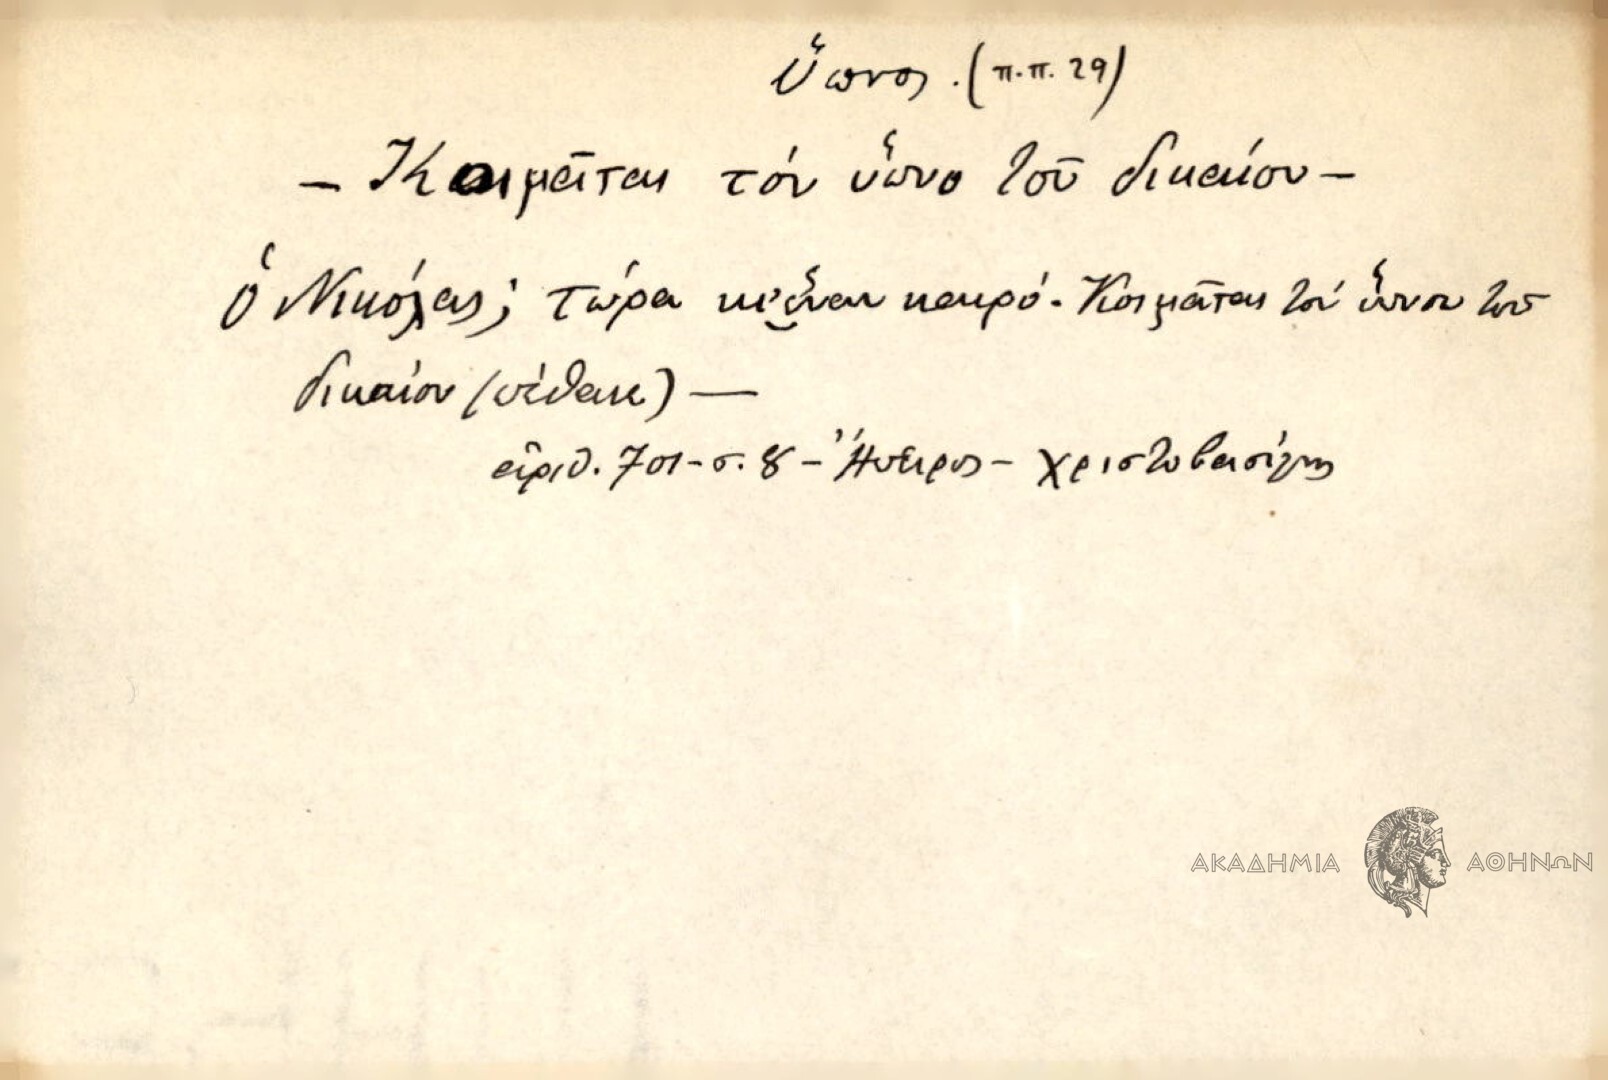 Ὕπνος. (π.π. 29)
— Κοιμᾶται τόν ὕπνο τοῦ δικαίου —
Ὁ Νικόλας; τώρα κι' ἕναν καιρό. Κοιμᾶται τόν ὕπνου τοῦ
δικαίου (πέθανε) —
ἀριθ. 701 - σ. 8 - Ἤπειρος - Χριστοβασίλης
ΑΚΑΔΗΜΙΑ ΑΘΗΝΩΝ